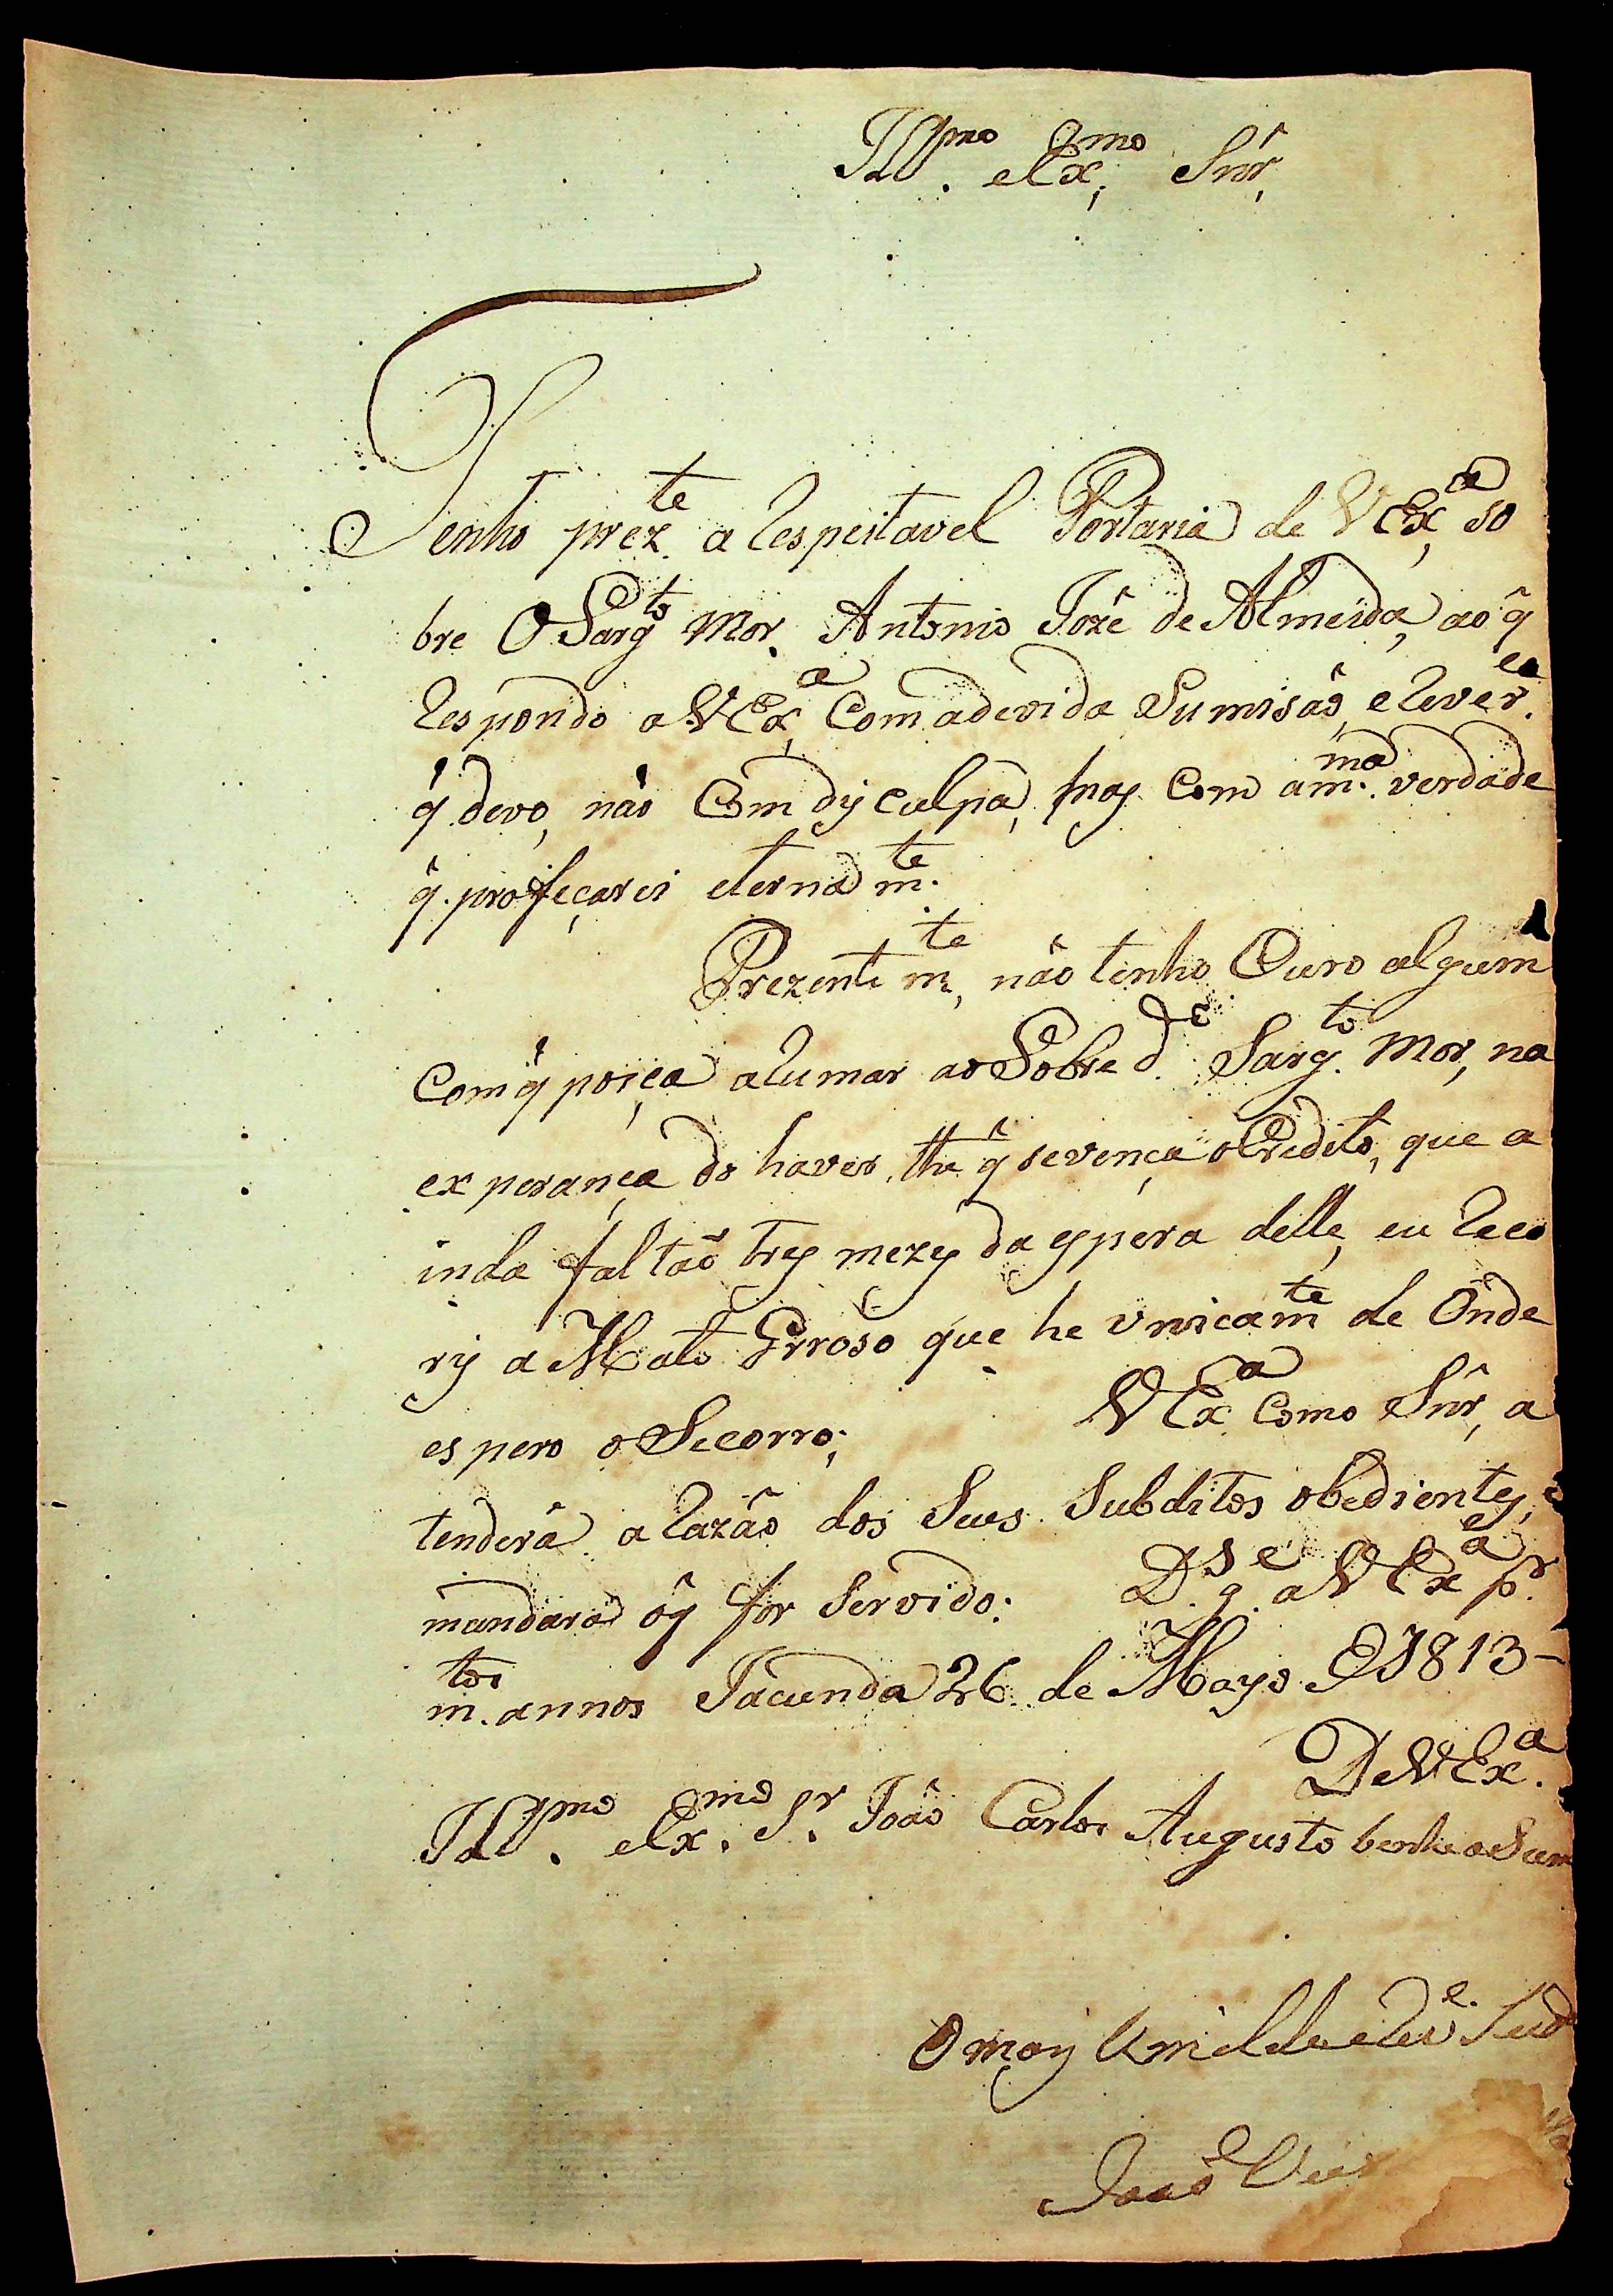 Ill.mo e Ex.mo Snr,
Tenho prez.te a Respeitavel Portaria de V Ex.a so
bre O Sarg.to Mor. Antonio Jozê de Almeida, ao q̂
Respondo a V Ex.a Com a devida Sumisaõ, e Rever.ca
q̂ devo, naõ Com dysculpa, mas Com a m.ma verdade
q̂. profeçarei eterna m.te
Prezente m.te, naõ tenho Ouro algum
Com q̂ poiça arumar ao Sobre d.o Sarg.to Mor, na
experança do haver, thê q̂ se vença o Credito, que a
inda faltaõ treys mezes da espera delle, eu Reco
ry a Mato Grroso que he unicam.te de Onde
espero o Secorro; V Ex.a Como Snr, a
tenderâ a Razaõ dos Seus Subditos obedientes, e
mandarâ o q̂ for Servido: D.s g.e a V Ex.a p.r
m.tos annos Jacunda 26 de Mayo D 1813-
De V Ex.a
Ill.mo e Ex.mo S.r Joaõ Carlos Augusto
O mays Umilde e Rev.e
Joaõ